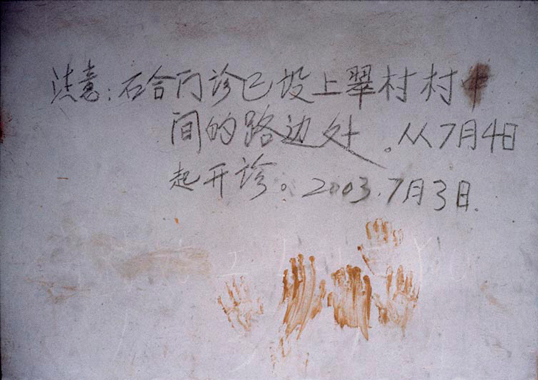 注意:石合门诊已设上翠村村中
间的路边处。从7月4日
起开诊。2003.7月3日.